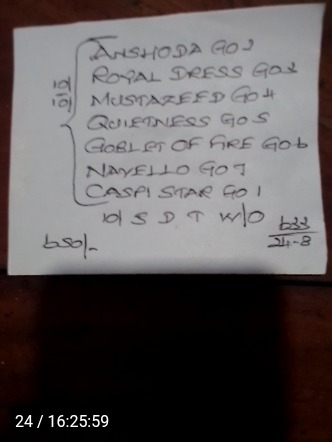 10/10
ANSHODA GO 2
ROYAL DRESS GO 3
MUSTAZEED GO 4
QUIETNESS GO 5
GOBLET OF FIRE GO 6
NAYELLO GO 7
CASPI STAR GO 1
10/ S D T W/O
650/-
633
24-8
24 / 16:25:59